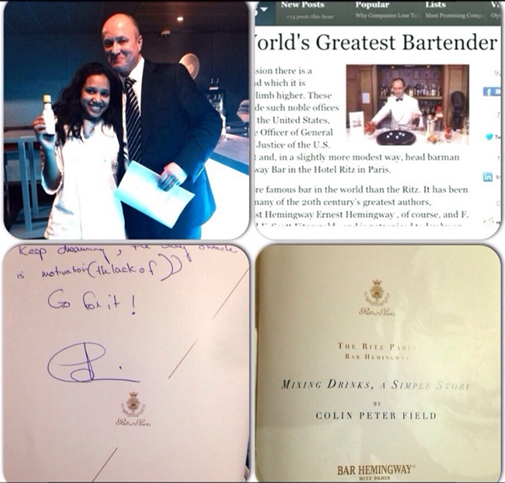 New Posts
Popular
Lists
+14 posts this hour
Why Companies Lose To
Most Promising Comp
World's Greatest Bartender
sion there is a
d which it is
limb higher. These
de such noble offices
the United States,
e Officer of General
Justice of the U.S.
t and, in a slightly more modest way, head barman
way Bar in the Hotel Ritz in Paris.
re famous bar in the world than the Ritz. It has been
many of the 20th century's greatest authors,
st Hemingway Ernest Hemingway , of course, and F.
Keep dreaming, the only obstacle
is motivation (the lack of))
Go for it!
Ritz Paris
Ritz Paris
THE RITZ PARIS
BAR HEMINGWAY
MIXING DRINKS, A SIMPLE STORY
BY
COLIN PETER FIELD
BAR HEMINGWAY
RITZ PARIS